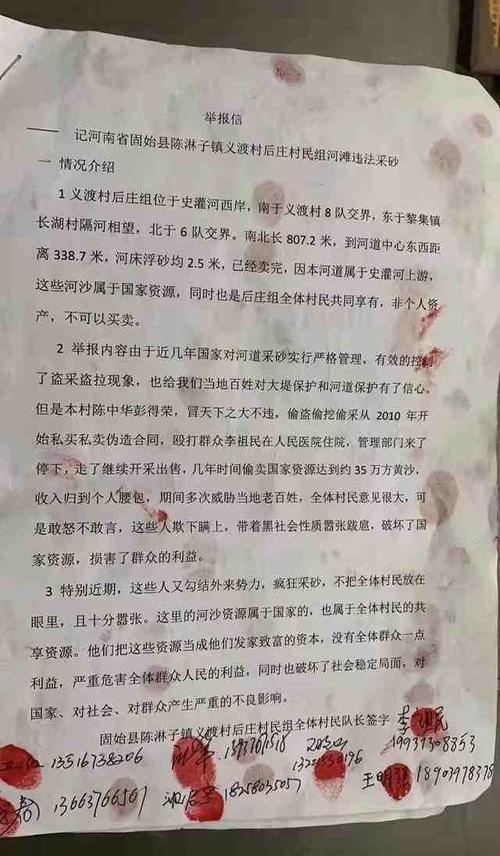 举报信
——记河南省固始县陈淋子镇义渡村后庄村民组河滩违法采砂
一 情况介绍
1 义渡村后庄组位于史灌河西岸，南于义渡村 8 队交界，东于黎集镇
长湖村隔河相望，北于 6 队交界。南北长 807.2 米，到河道中心东西距
离 338.7 米，河床浮砂均 2.5 米，已经卖完，因本河道属于史灌河上游，
这些河沙属于国家资源，同时也是后庄组全体村民共同享有，非个人资
产，不可以买卖。
2 举报内容由于近几年国家对河道采砂实行严格管理，有效的控制
了盗采盗拉现象，也给我们当地百姓对大堤保护和河道保护有了信心。
但是本村陈中华彭得荣，冒天下之大不违，偷盗偷挖偷采从 2010 年开
始私买私卖伪造合同，殴打群众李祖民在人民医院住院，管理部门来了
停下，走了继续开采出售，几年时间偷卖国家资源达到约 35 万方黄沙，
收入归到个人腰包，期间多次威胁当地老百姓，全体村民意见很大，可
是敢怒不敢言，这些人欺下瞒上，带着黑社会性质嚣张跋扈，破坏了国
家资源，损害了群众的利益。
3 特别近期，这些人又勾结外来势力，疯狂采砂，不把全体村民放在
眼里，且十分嚣张。这里的河沙资源属于国家的，也属于全体村民的共
享资源。他们把这些资源当成他们发家致富的资本，没有全体群众一点
利益，严重危害全体群众人民的利益，同时也破坏了社会稳定局面，对
国家、对社会、对群众产生严重的不良影响。
固始县陈淋子镇义渡村后庄村民组全体村民队长签字 李祖民
13516738206 19931308863
13663766567 18258035057 王明 18903978378